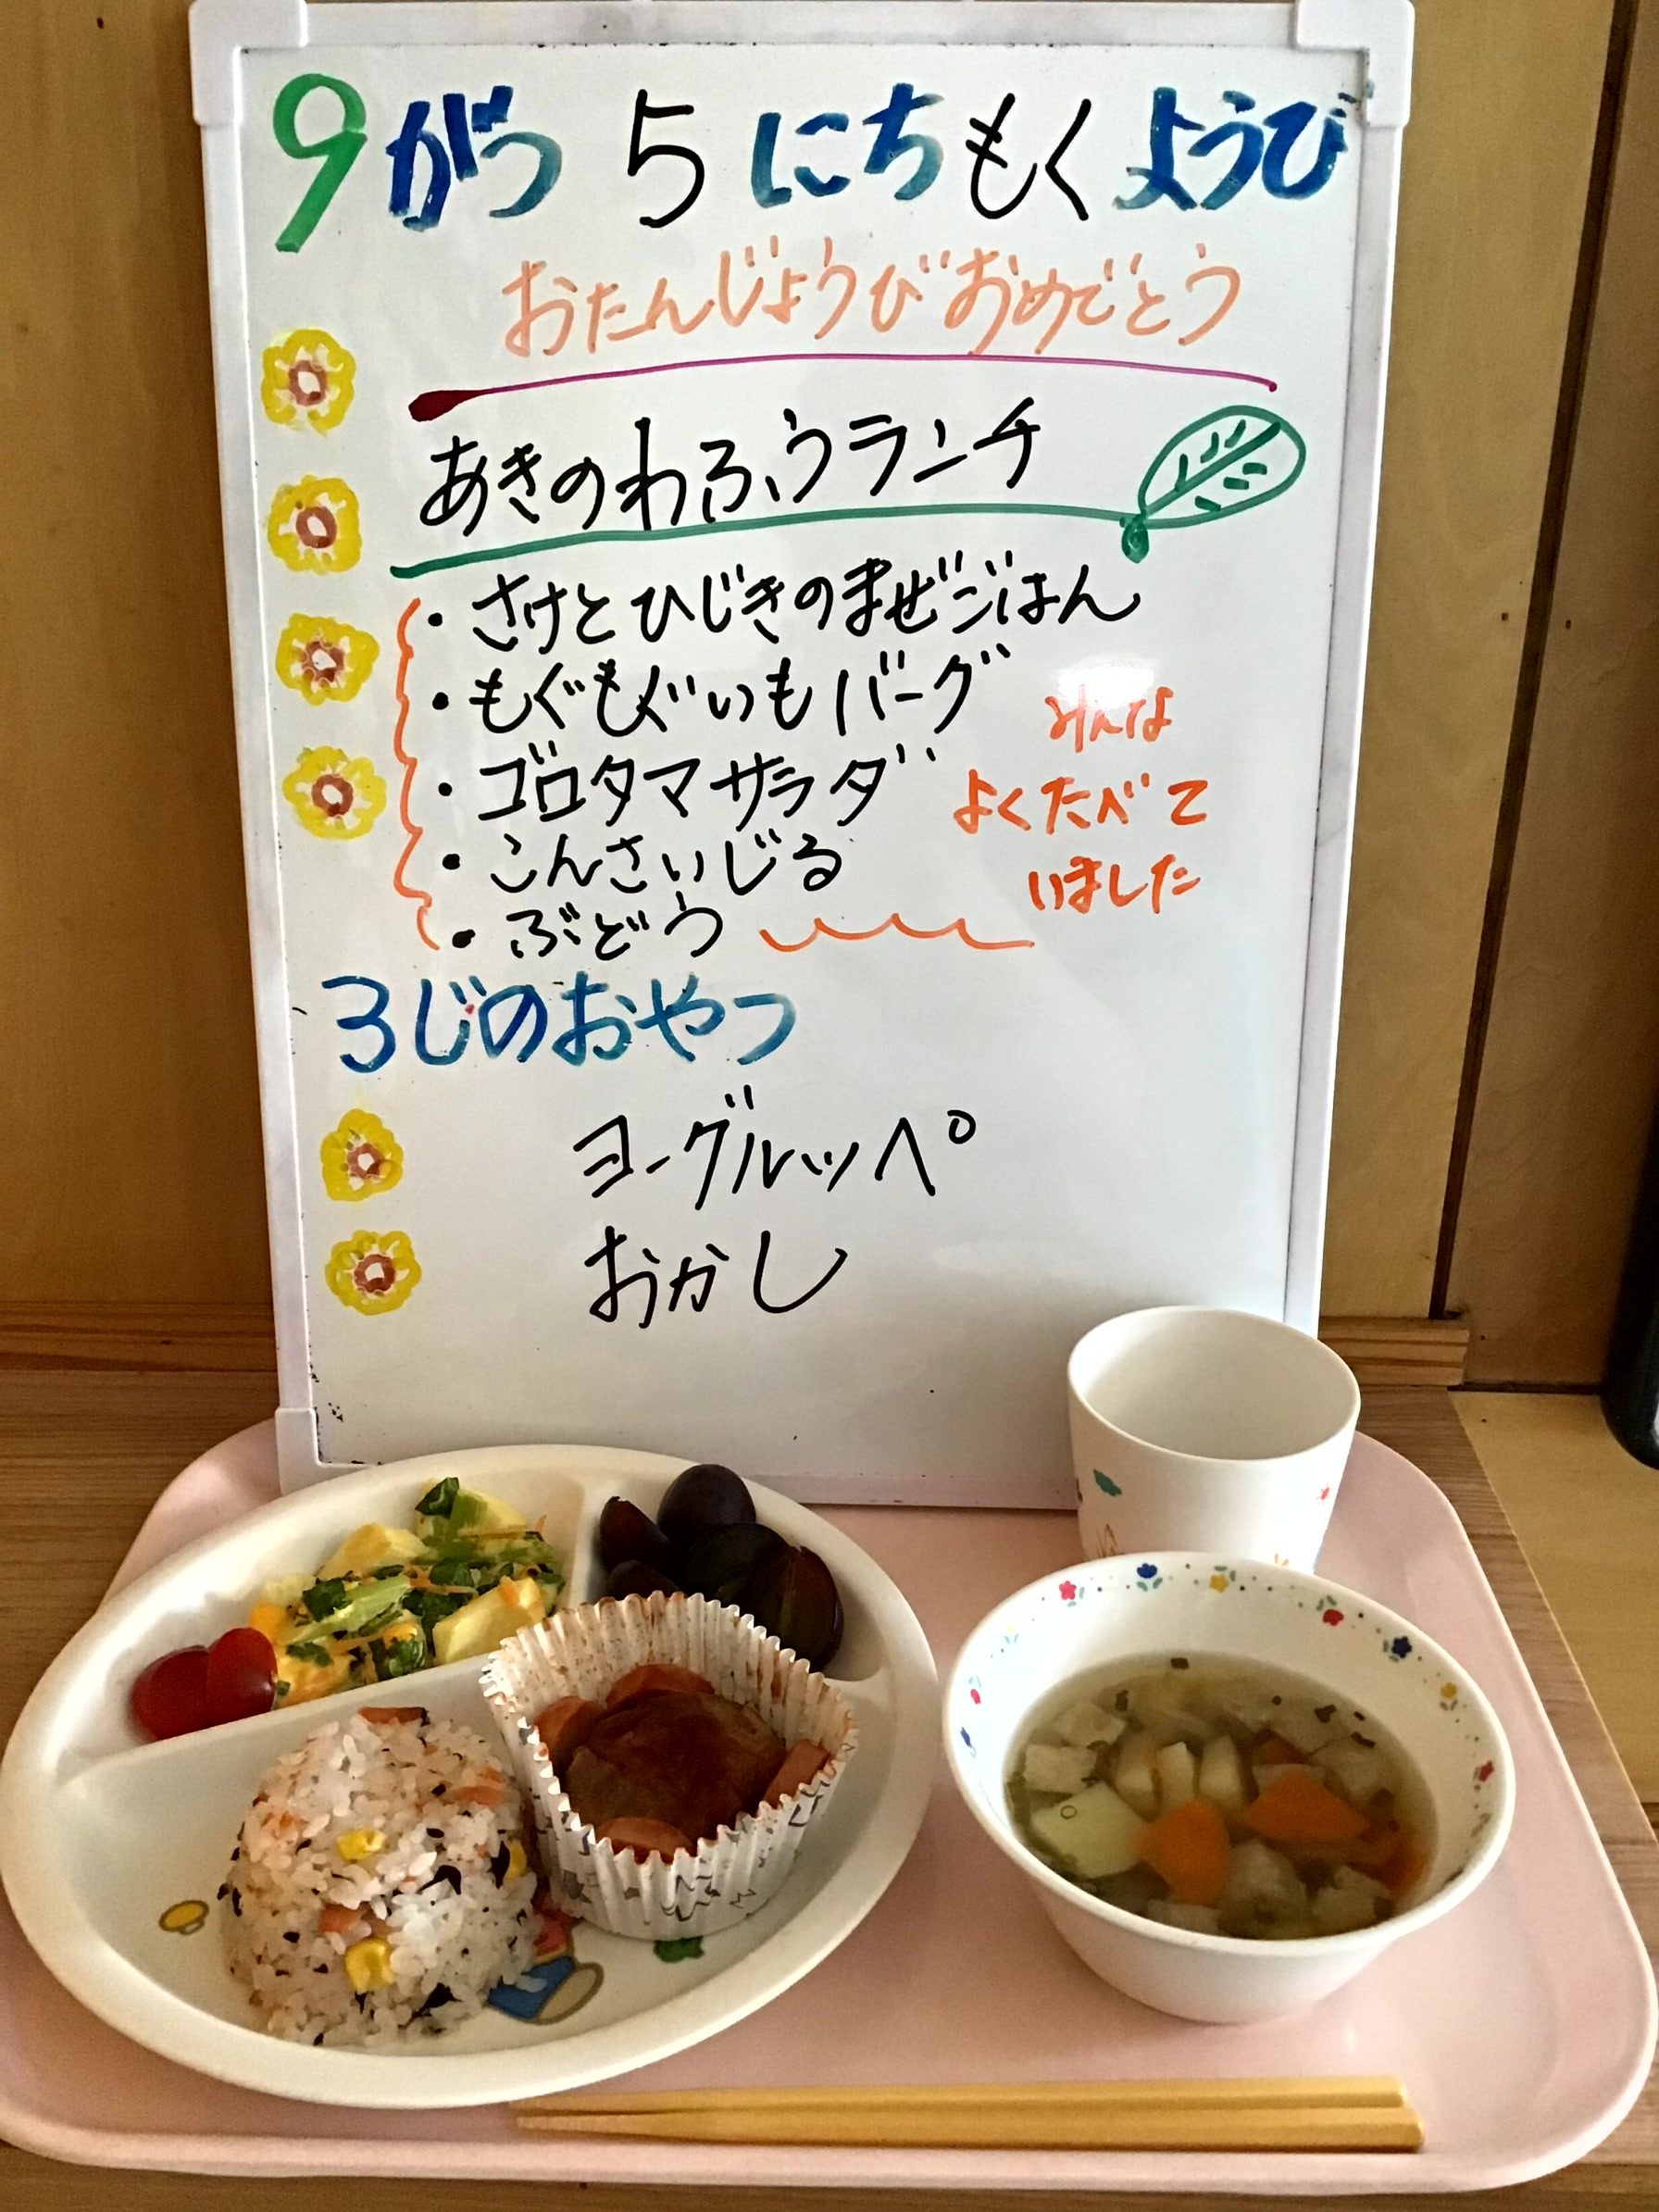 9がつ 5 にち もく ようび
おたんじょうび おめでとう
あきのわふうランチ
・さけとひじきのまぜごはん
・もぐもぐいもバーグ
・ゴロタマサラダ
・こんさいじる
・ぶどう
みんな
よくたべて
いました
3じのおやつ
ヨーグルッペ
おかし